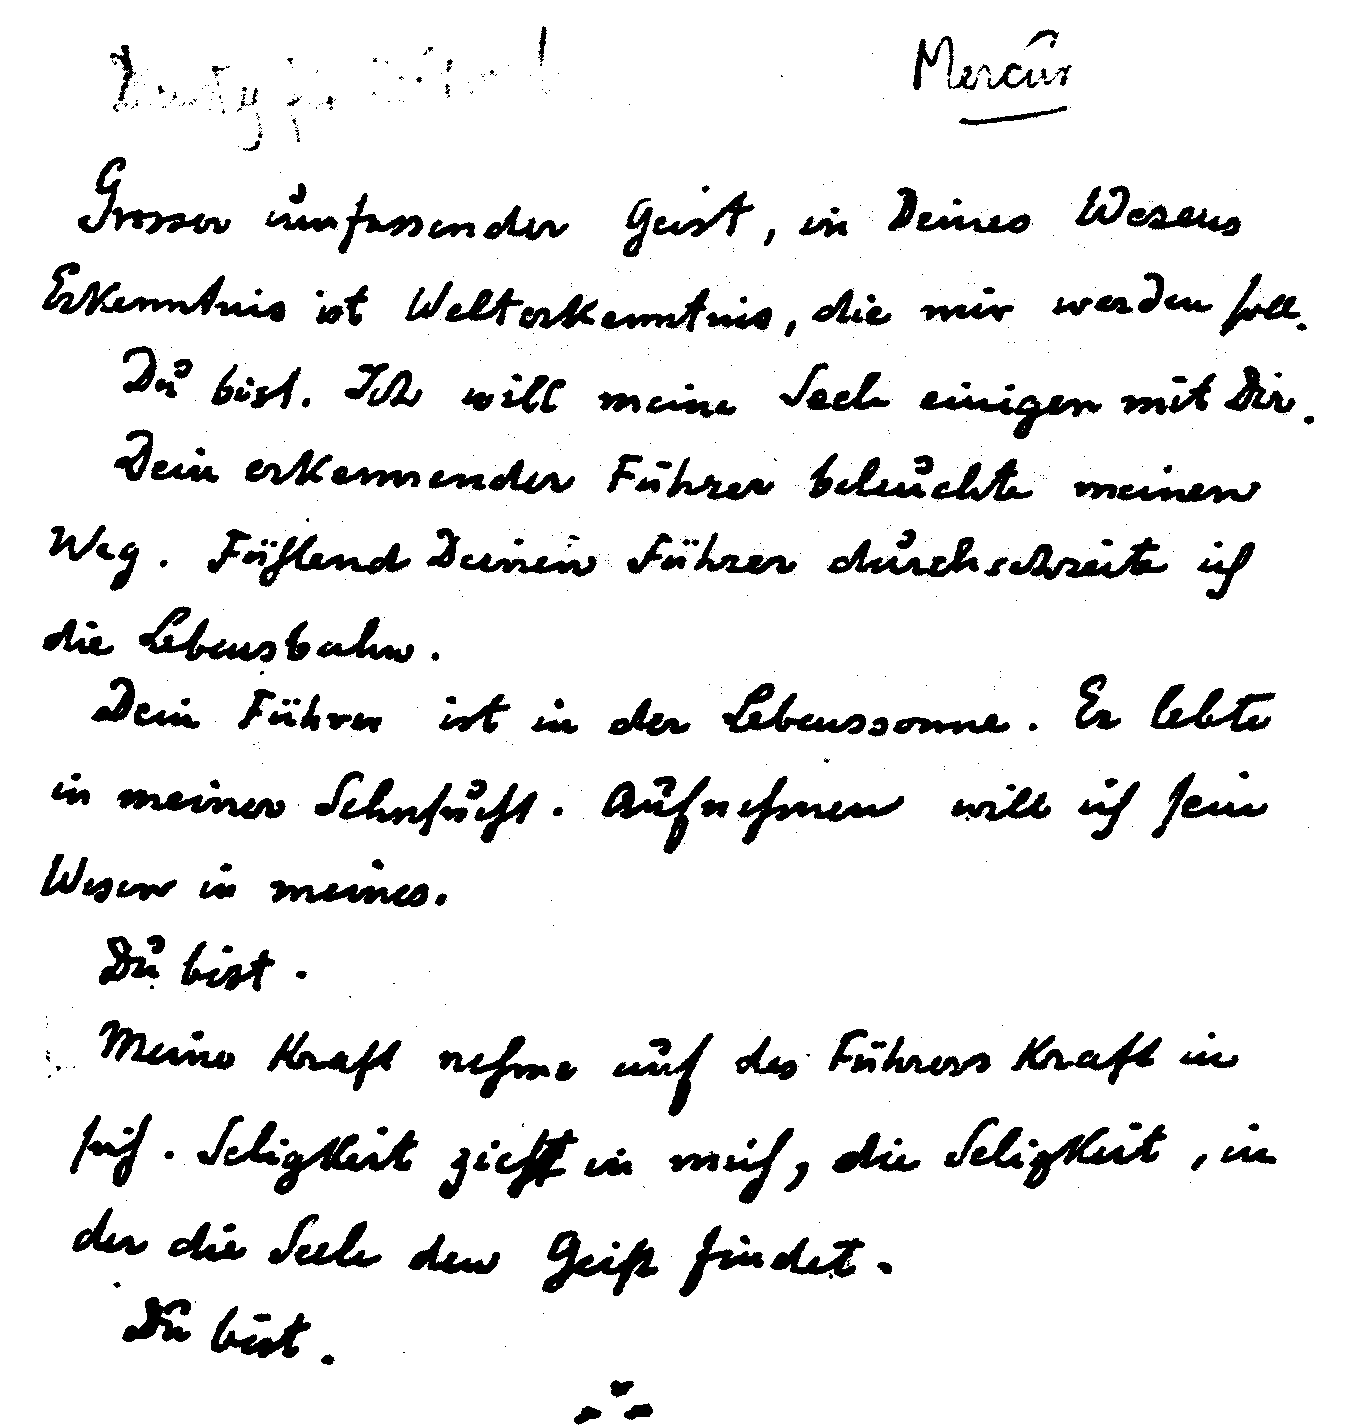 Dienstag für Mittwoch
Mercur
Grosser umfassender Geist, in Deines Wesens
Erkenntnis ist Welterkenntnis, die mir werden soll.
Du bist. Ich will meine Seele einigen mit Dir.
Dein erkennender Führer beleuchte meinen
Weg. Fühlend Deinen Führer durchschreite ich
die Lebensbahn.
Dein Führer ist in der Lebenssonne. Er lebte
in meiner Sehnsucht. Aufnehmen will ich sein
Wesen in meines.
Du bist.
Meine Kraft nehme auf des Führers Kraft in
sich. Seligkeit zieht in mich, die Seligkeit, in
der die Seele den Geist findet.
Du bist.